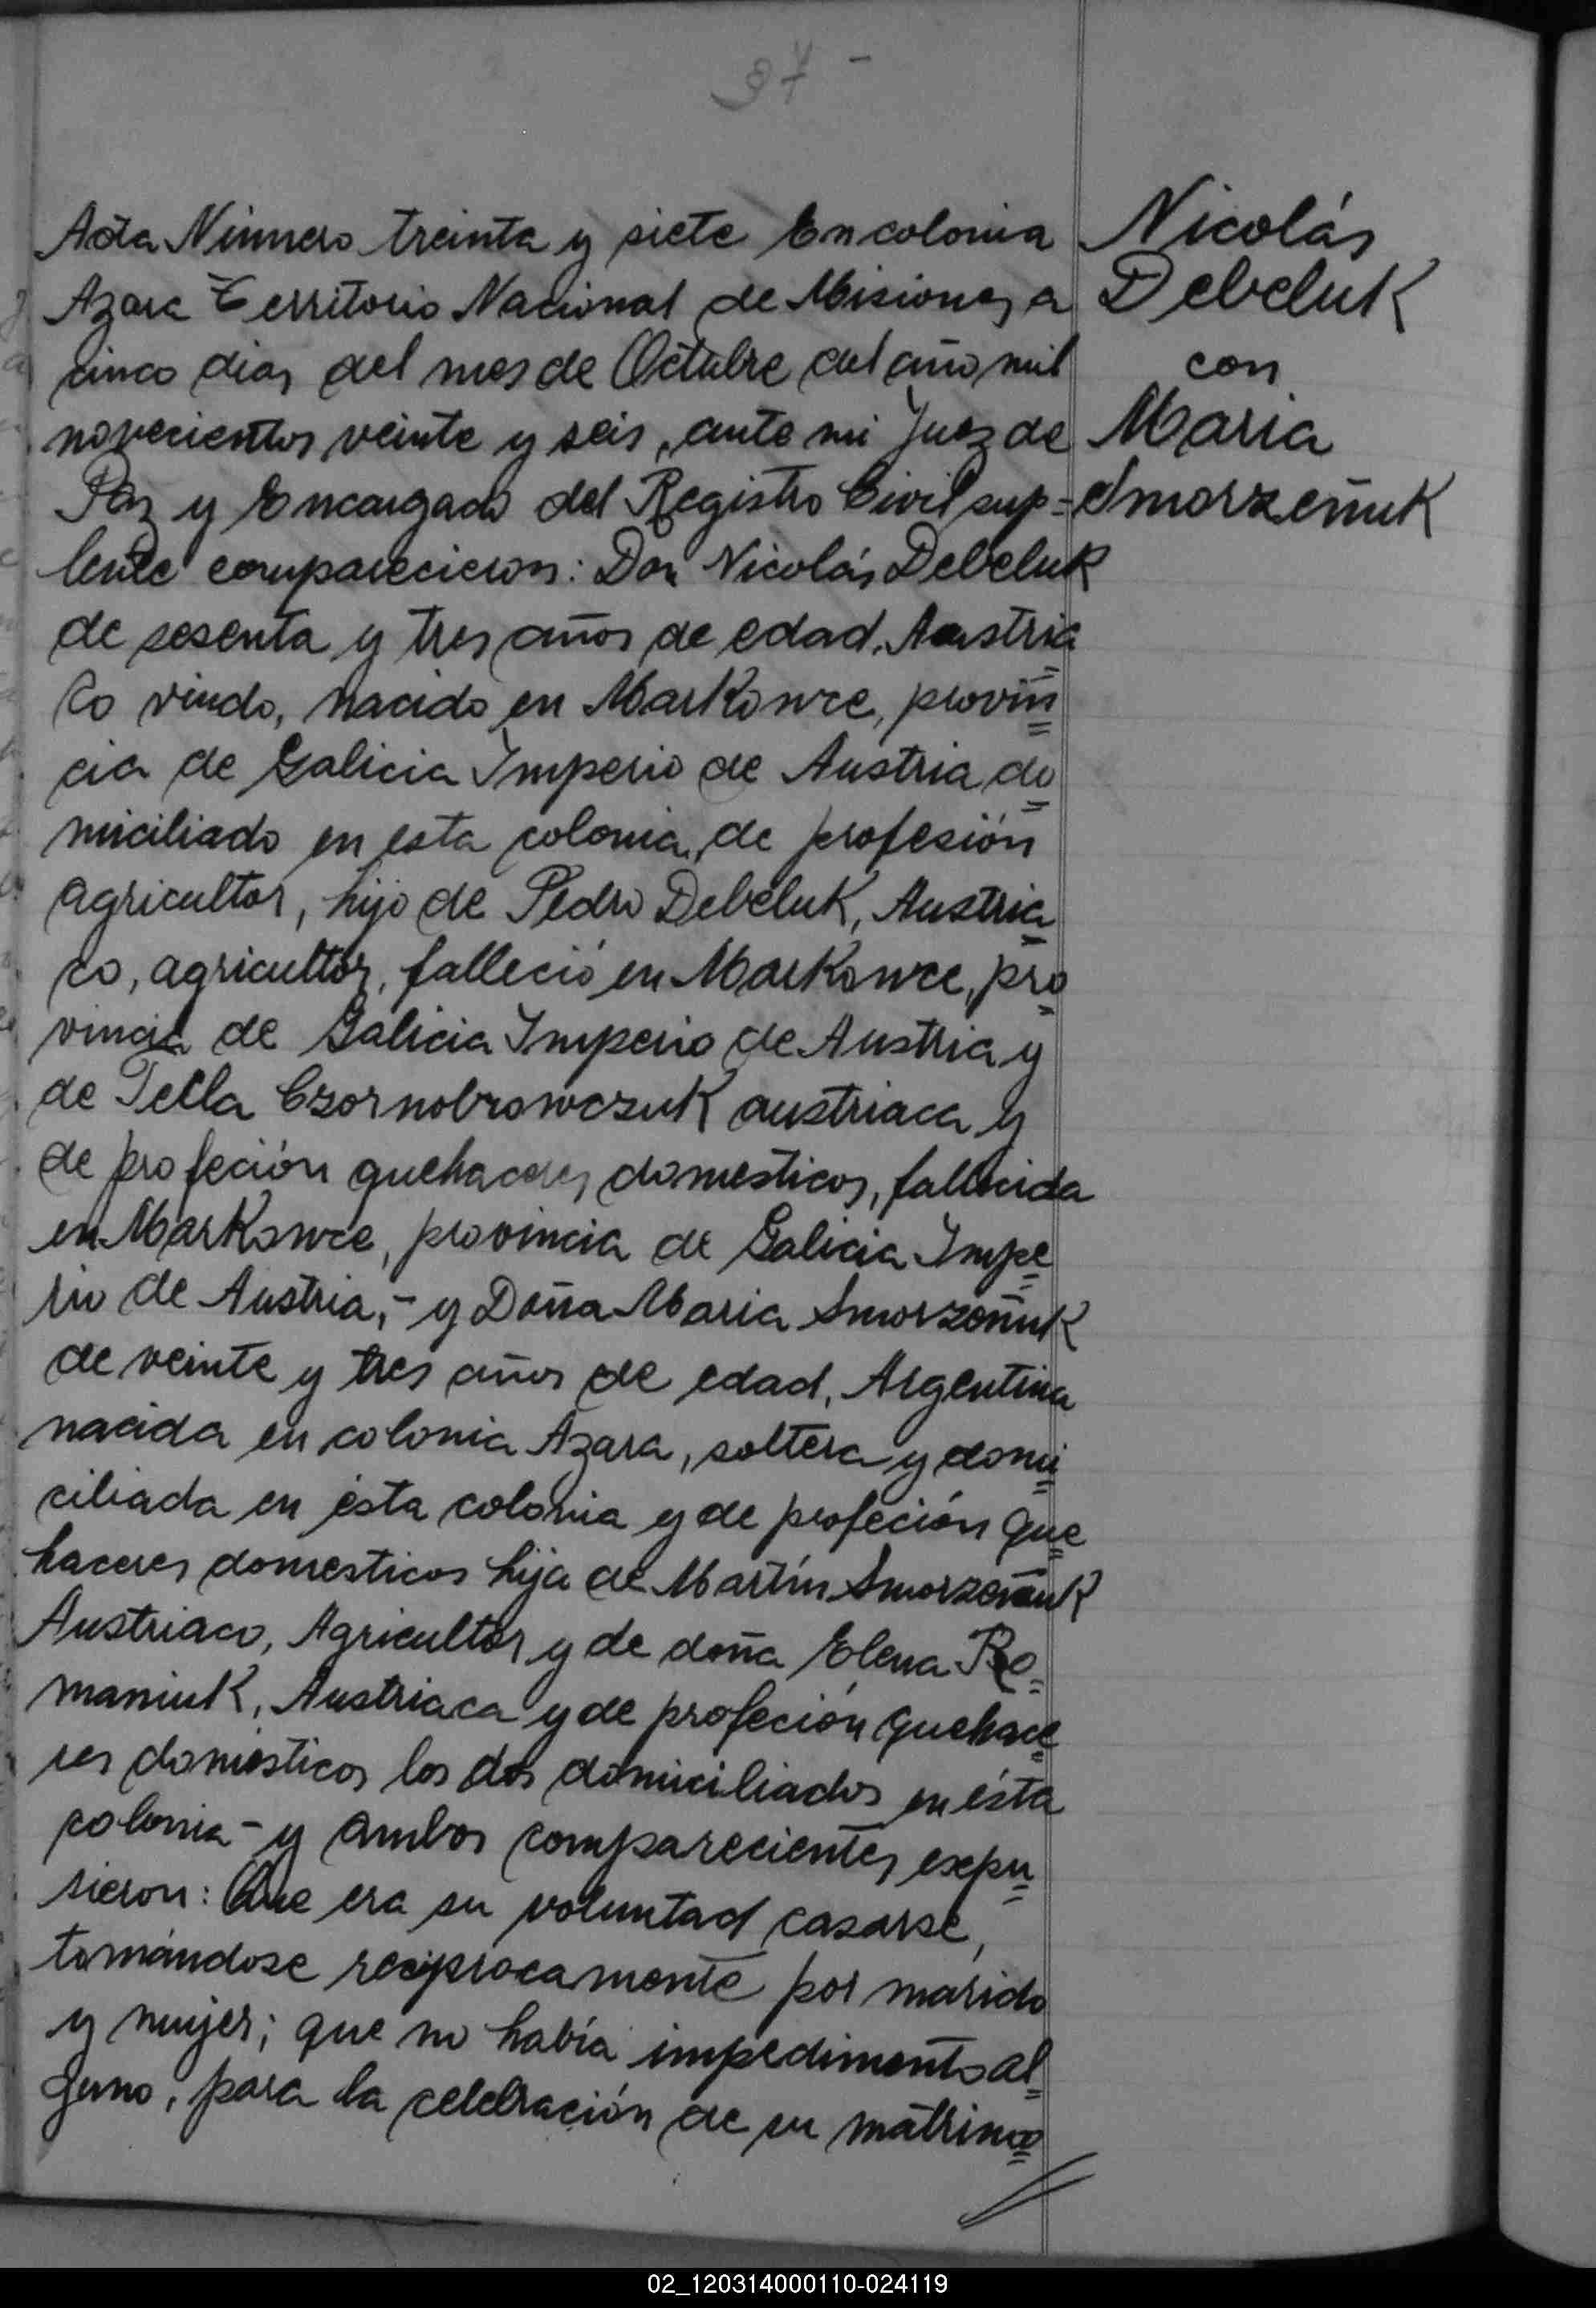 37 -
Acta Número treinta y siete En colonia
Azara Territorio Nacional de Misiones, a
cinco dias, del mes de Octubre del año mil
novecientos veinte y seis, ante mi Juez de
Paz y Encargado del Registro Civil sup=
lente comparecieron: Don Nicolás Debeluk
de sesenta y tres años de edad, Austria
co viudo, nacido en Markowce, provin
cia de Galicia Imperio de Austria do
miciliado en esta colonia, de profesión
agricultor, hijo de Pedro Debeluk, Austria
co, agricultor, falleció en Markowce, pro
vincia de Galicia Imperio de Austria y
de Tecla Czornobrowczuk austriaca y
de profeción quehaceres domesticos, fallecida
en Markowce, provincia de Galicia Impe
rio de Austria,- y Doña Maria Smorzeñuk
de veinte y tres años de edad, Argentina
nacida en colonia Azara, soltera y domi
ciliada en ésta colonia y de profeción que
haceres domesticos hija de Martín Smorzeñuk
Austriaco, Agricultor y de doña Elena Ro
maniuk, Austriaca y de profeción quehace
res domésticos los dos domiciliados en ésta
colonia - y ambos comparecientes expu
sieron: Que era su voluntad casarse,
tomándose reciprocamente por marido
y mujer; que no había impedimento al
guno, para la celebración de su matrimo
Nicolás
Debeluk
con
Maria
Smorzeñuk
02_120314000110-024119